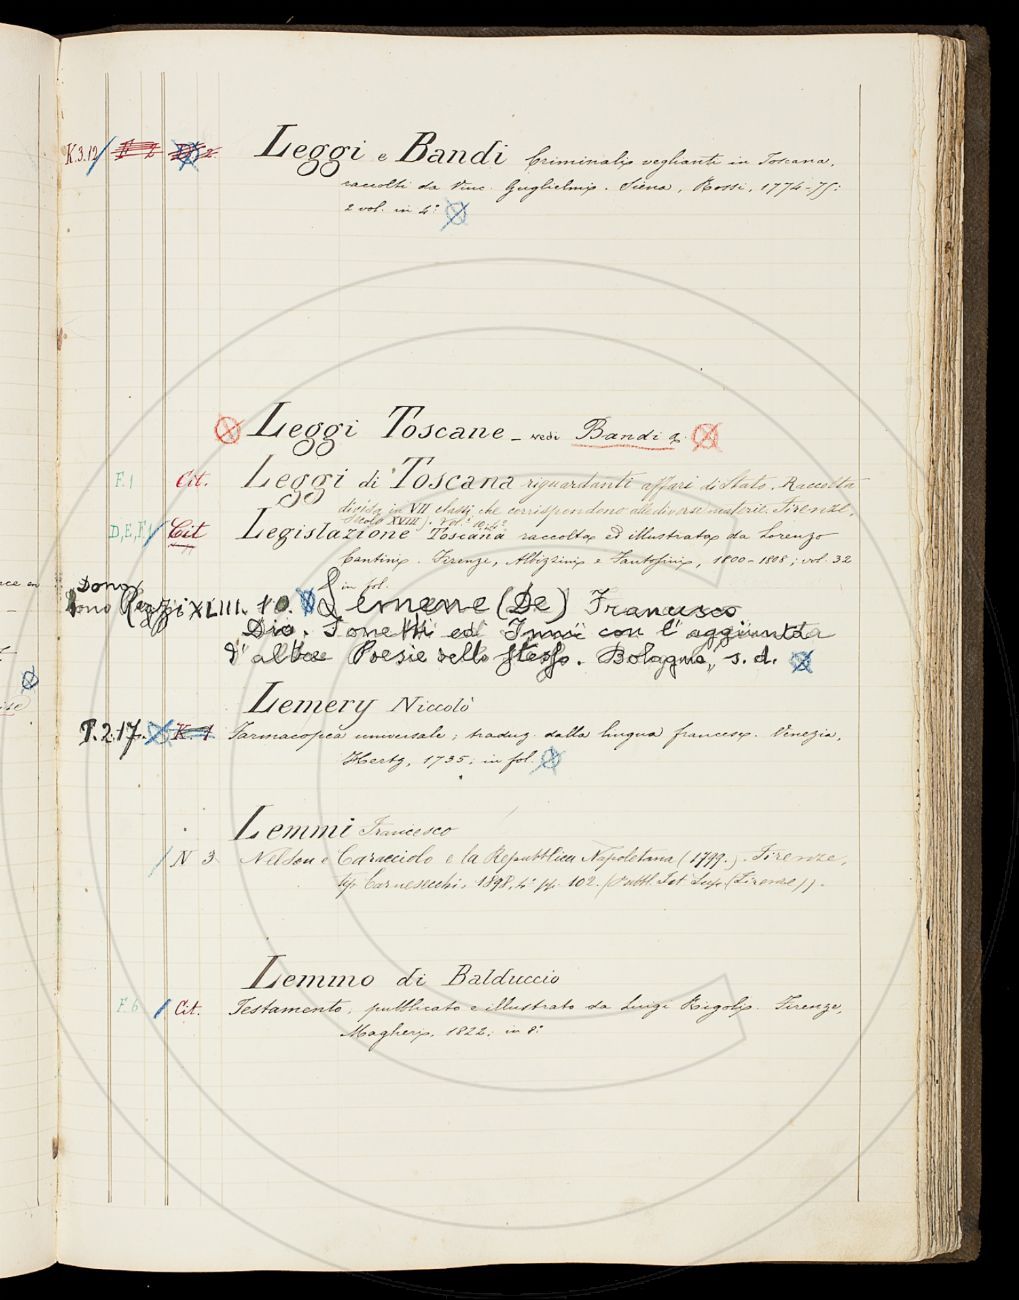 K.3.12 Leggi e Bandi Criminali veglianti in Toscana,
raccolti da Vinc. Guglielmi. Siena, Rossi, 1774-75:
2 vol. in 4.°
Leggi Toscane - vedi Bandi
F.1 Cit. Leggi di Toscana riguardanti affari di Stato. Raccolta
divisa in VII classi che corrispondono alle diverse materie. Firenze,
Secolo XVIII. Vol. 10 4.°
D, E, F, Cit Legislazione Toscana raccolta ed illustrata da Lorenzo
Cantini. Firenze, Albizzini e Fantosini, 1800-1808; vol. 32
in fol.
Dono
Dono XLIII. 10. Lemene (De) Francesco
Dio. Sonetti ed Inni con l'aggiunta
d'altre Poesie dello stesso. Bologna, s. d.
Lemery Niccolò
P.2.17. K. 1 Farmacopea universale; traduz. dalla lingua francese. Venezia,
Hertz, 1735; in fol.
Lemmi Francesco
N 3 Nelson e Caracciolo e la Repubblica Napoletana (1799). Firenze,
tip. Carnesecchi, 1898, 4.° pp. 102. (Pubbl. Ist. Sup. (Firenze)).
Lemmo di Balduccio
F.6 Cit. Testamento, pubblicato e illustrato da Luigi Rigoli. Firenze,
Magheri, 1822; in 8.°